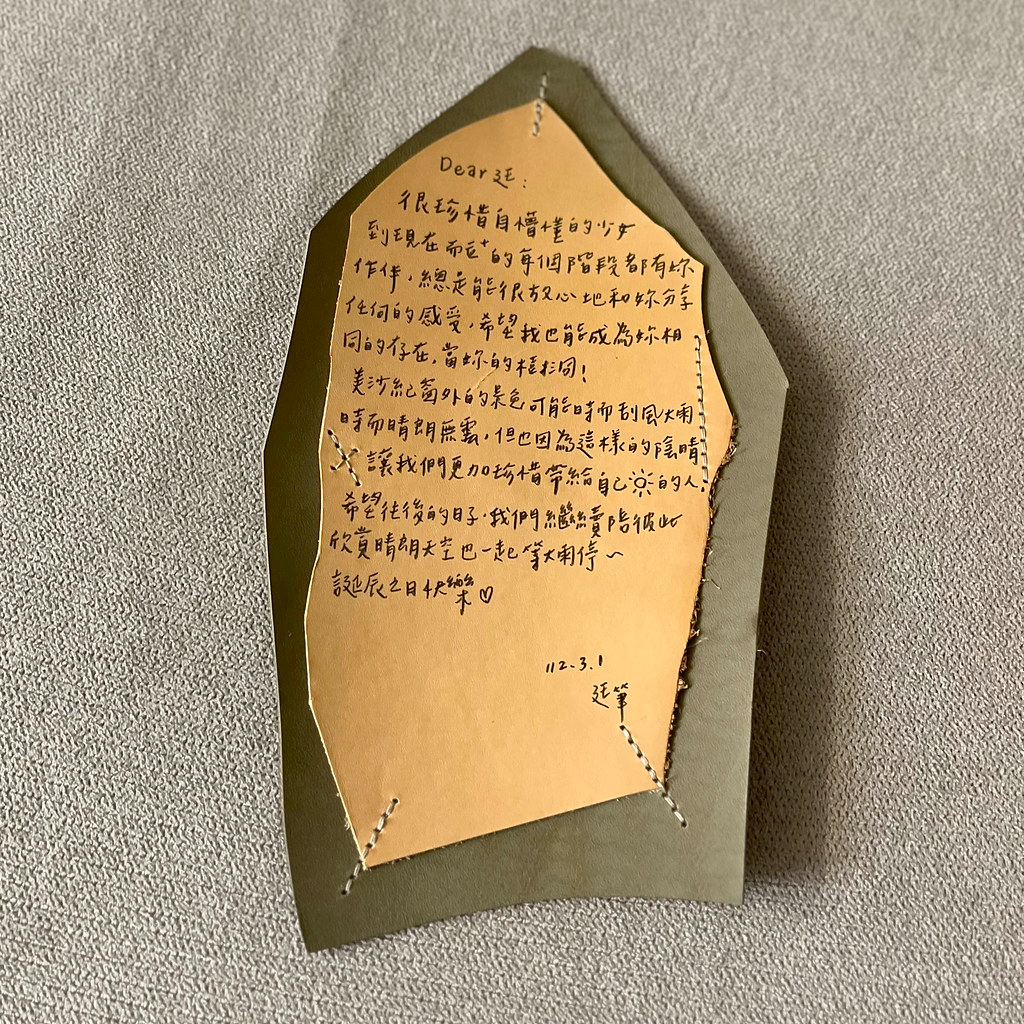 Dear 廷:
很珍惜自懵懂的少女
到現在而立⁺的每個階段都有妳
作伴，總是能很放心地和妳分享
任何的感受，希望我也能成為妳相
同的存在，當妳的樹洞!
美沙紀窗外的景色可能時而刮風大雨
時而晴朗無雲，但也因為這樣的陰晴
讓我們更加珍惜帶給自己☼的人.
希望往後的日子，我們繼續陪彼此
欣賞晴朗天空也一起等大雨停~
誕辰之日快樂♡
112.3.1
廷筆